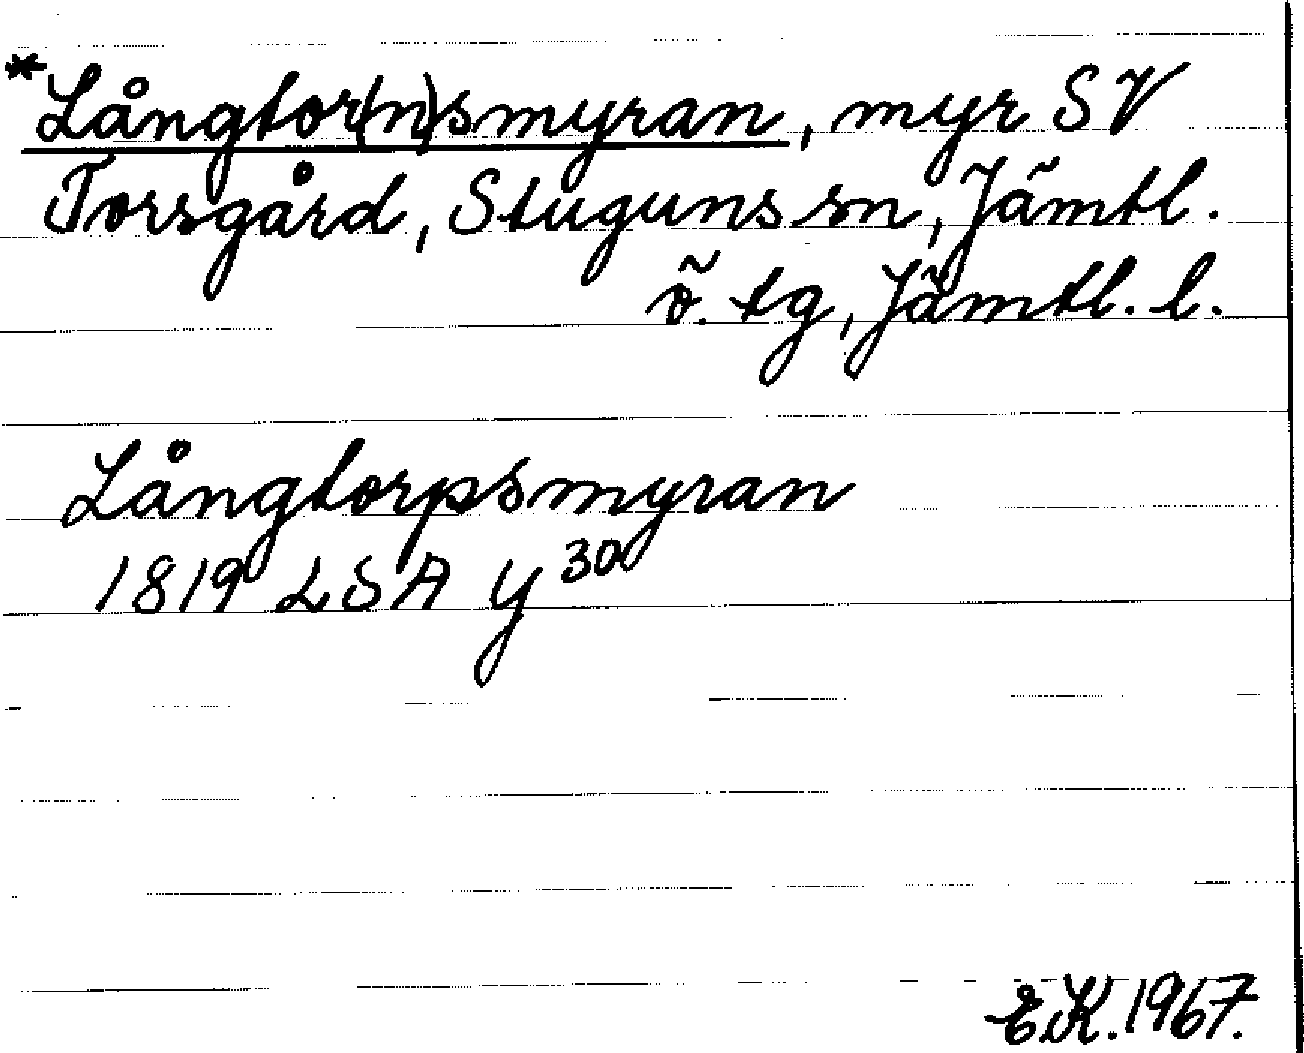 *Långtor(n)smyran, myr SV
Torsgård, Stuguns sn, Jämtl.
ö. tg, Jämtl. l.
Långtorpsmyran
1819 LSA Y 30
E.K. 1967.